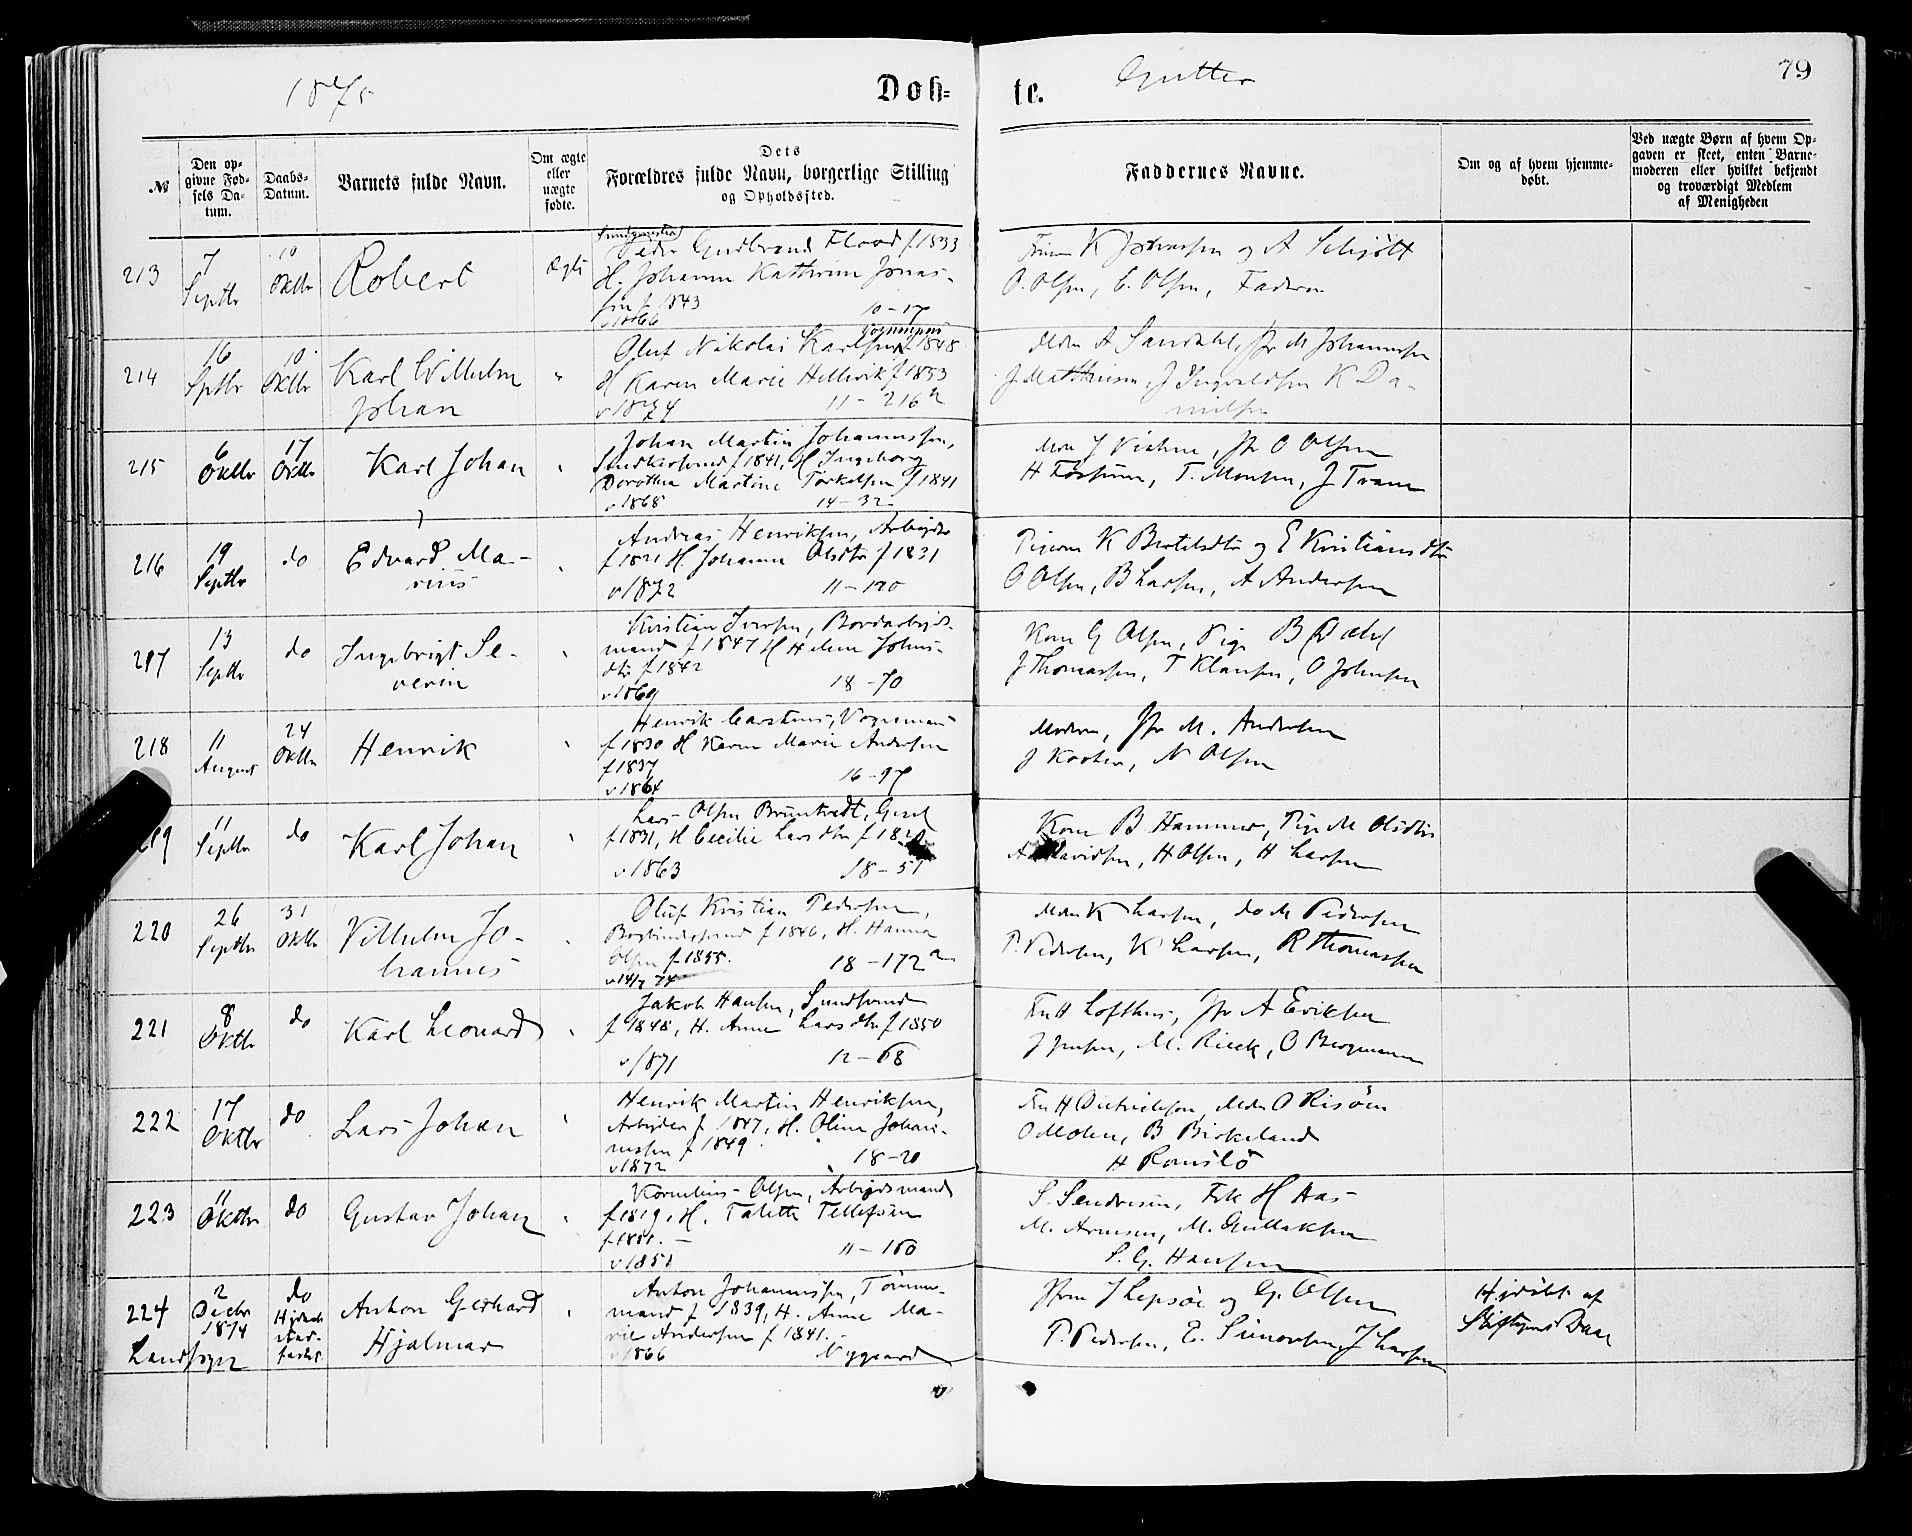 1875
Døb-
te.
Gutter
79
№
Den op-
givne Fød-
sels Da-
tum.
Daabs-
Datum.
Barnets fulde Navn.
Om ægte
eller
uægte
fødte.
Dets
Forældres fulde Navn, borgerlige Stilling
og Opholdssted.
Faddernes Navne.
Om og af hvem hjemme-
døbt.
Ved uægte Børn af hvem Op-
gaven er skeet, enten Barne-
moderen eller hvilket bekjendt
og troværdigt Medlem
af Menigheden
213
7
Septbr
10
Oktbr
Robert
Ægte
Peder Gudbrand Flood f 1833
H. Johanne Kathrine Jonas-
sen f 1843
v 1866 10-17
K Johnsen og A Schjøtt
O. Olsen, E. Olsen, Faderen
214
16
Sptbr
10
Oktbr
Karl Vilhelm
Johan
"
Oluf Nikolai Karlsen f 1848
H Karen Marie Hellevik f 1853
v 1874 11-216
A Sandahl, Jfr M Johannesen
J Mathiesen, J Ingvaldsen K Da-
nielsen
215
6
Oktbr
17
Oktbr
Karl Johan
"
Johan Martin Johannessen,
f 1841, H Ingeborg
Dorothea Martine Torkelsen f 1841
v 1868 14-32
O Olsen
H Fossum, T. Monsen, J Trane
216
19
Septbr
do
Edvard Ma-
rius
"
Andreas Henriksen, Arbeider
f 1821 H Johanne Olsdtr f 1831
v 1872 11-120
Pigerne K Bertelsdtr og E Kristiansdtr
O Olsen, B Larsen, A Andersen
217
13
Septbr
do
Ingebrigt Se-
verin
"
Kristian Iversen, Bordarbeids-
mand f 1847 H Helene Johns-
dtr f 1842
v 1869 18-70
Kone G Olsen, Pige B Dahl
J Thomassen, T Klausen, O Johnsen
218
11
August
24
Oktbr
Henrik
"
Henrik Carstens, Vognmand
f 1830 H Karen Marie Andersen
f 1837
v 1864 16-97
Moderen, Jfr M. Andersen
J Koster, N Olsen
11
Septbr
do
Karl Johan
"
Lars Olsen
f 1831, H Cecilie Larsdtr
v 1863 18-51
Kone B Hammer, Pige M Olsdtr
A Davidsen, H Olsen, H Larsen
220
26
Septbr
31
Oktbr
Vilhelm Jo-
hannes
"
Oluf Kristian Pedersen,
f 1846, H. Hanna
Olsen f 1855.
18-172
K Larsen, do M Pedersen
P. Pedersen, K Larsen, R Thomassen
221
8
Oktbr
do
Karl Leonard
"
Jakob Hansen,
f 1848, H. Anne Larsdtr f 1850
v 1871 12-68
Fru H Lofthus, Jfr A Eriksen
J Jensen, M. Rieck, O Bergmann
222
17
Oktbr
do
Lars Johan
"
Henrik Martin Henriksen,
Arbeider f 1847, H. Oline Johan-
nessen f 1849.
v 1872 18-20
Fru H Diedrichsen, O Risøen
O Mohn, B Birkeland
H Romslo
223
11
Oktbr
do
Gustav Johan
"
Kornelius Olsen, Arbeidsmand
f 1819, H. Talette Tellefsen
v 1851 11-160
Frk H Aas
M. Arnesen, M. Gullaksen
S. G. Hansen
224
Landsogn
2
Decbr
1874
do
Anton Gerhard
Hjalmar
"
Anton Johannesen, Tømmer-
mand f 1839, H. Anne Ma-
rie Andersen f 1841.
v 1866 Nygaard
J Lepsøe og G. Olsen
P. Pedersen, E. Simonsen, J Larsen
Hjdøbt af
Daae